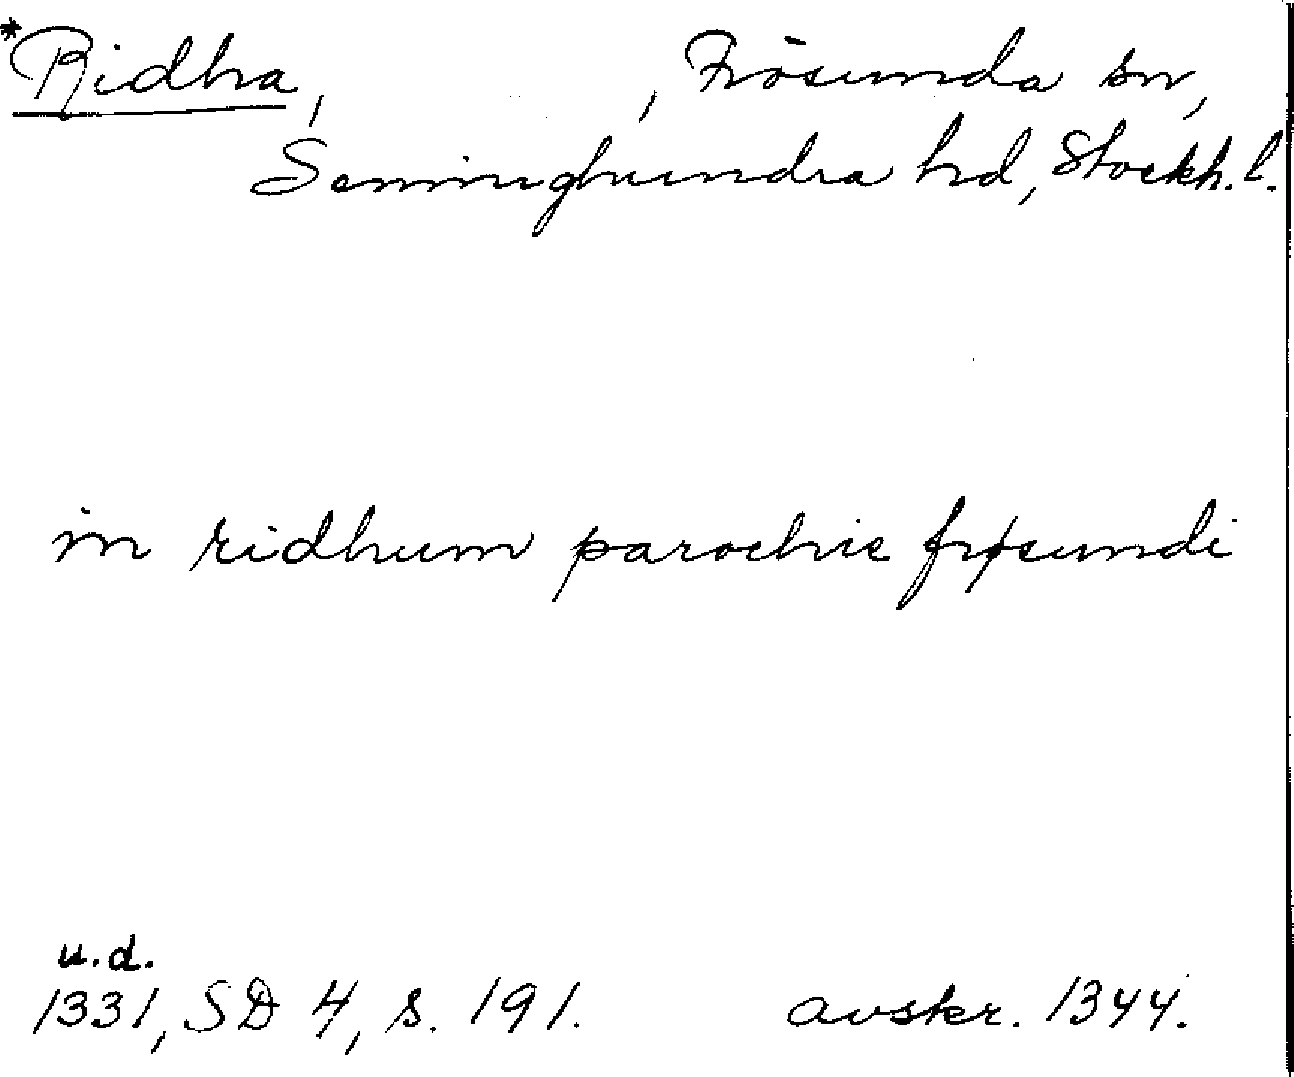 *Ridhra, , Frösunda sn,
Seminghundra hd, Stockh. l.
in ridhum parochie frøsundi
u.d.
1331, SD 4, s. 191. avskr. 1344.